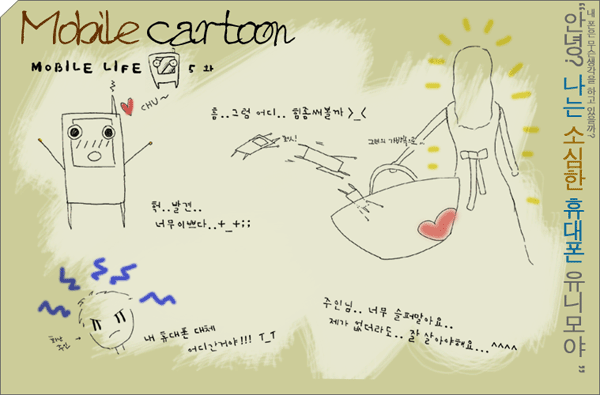 Mobile cartoon
MOBILE LIFE 5 화
CHU~
흠..그럼 어디.. 힘좀써볼까 >_<
퍽..발견..
너무이쁘다..+_+;;
내 휴대폰 대체
어디간거야!!! T_T
주인님.. 너무 슬퍼말아요..
제가 없더라도.. 잘 살아야해요...^^^^
내 폰은 무슨생각을 하고 있을까?
"안녕? 나는 소심한 휴대폰 유니모야 "